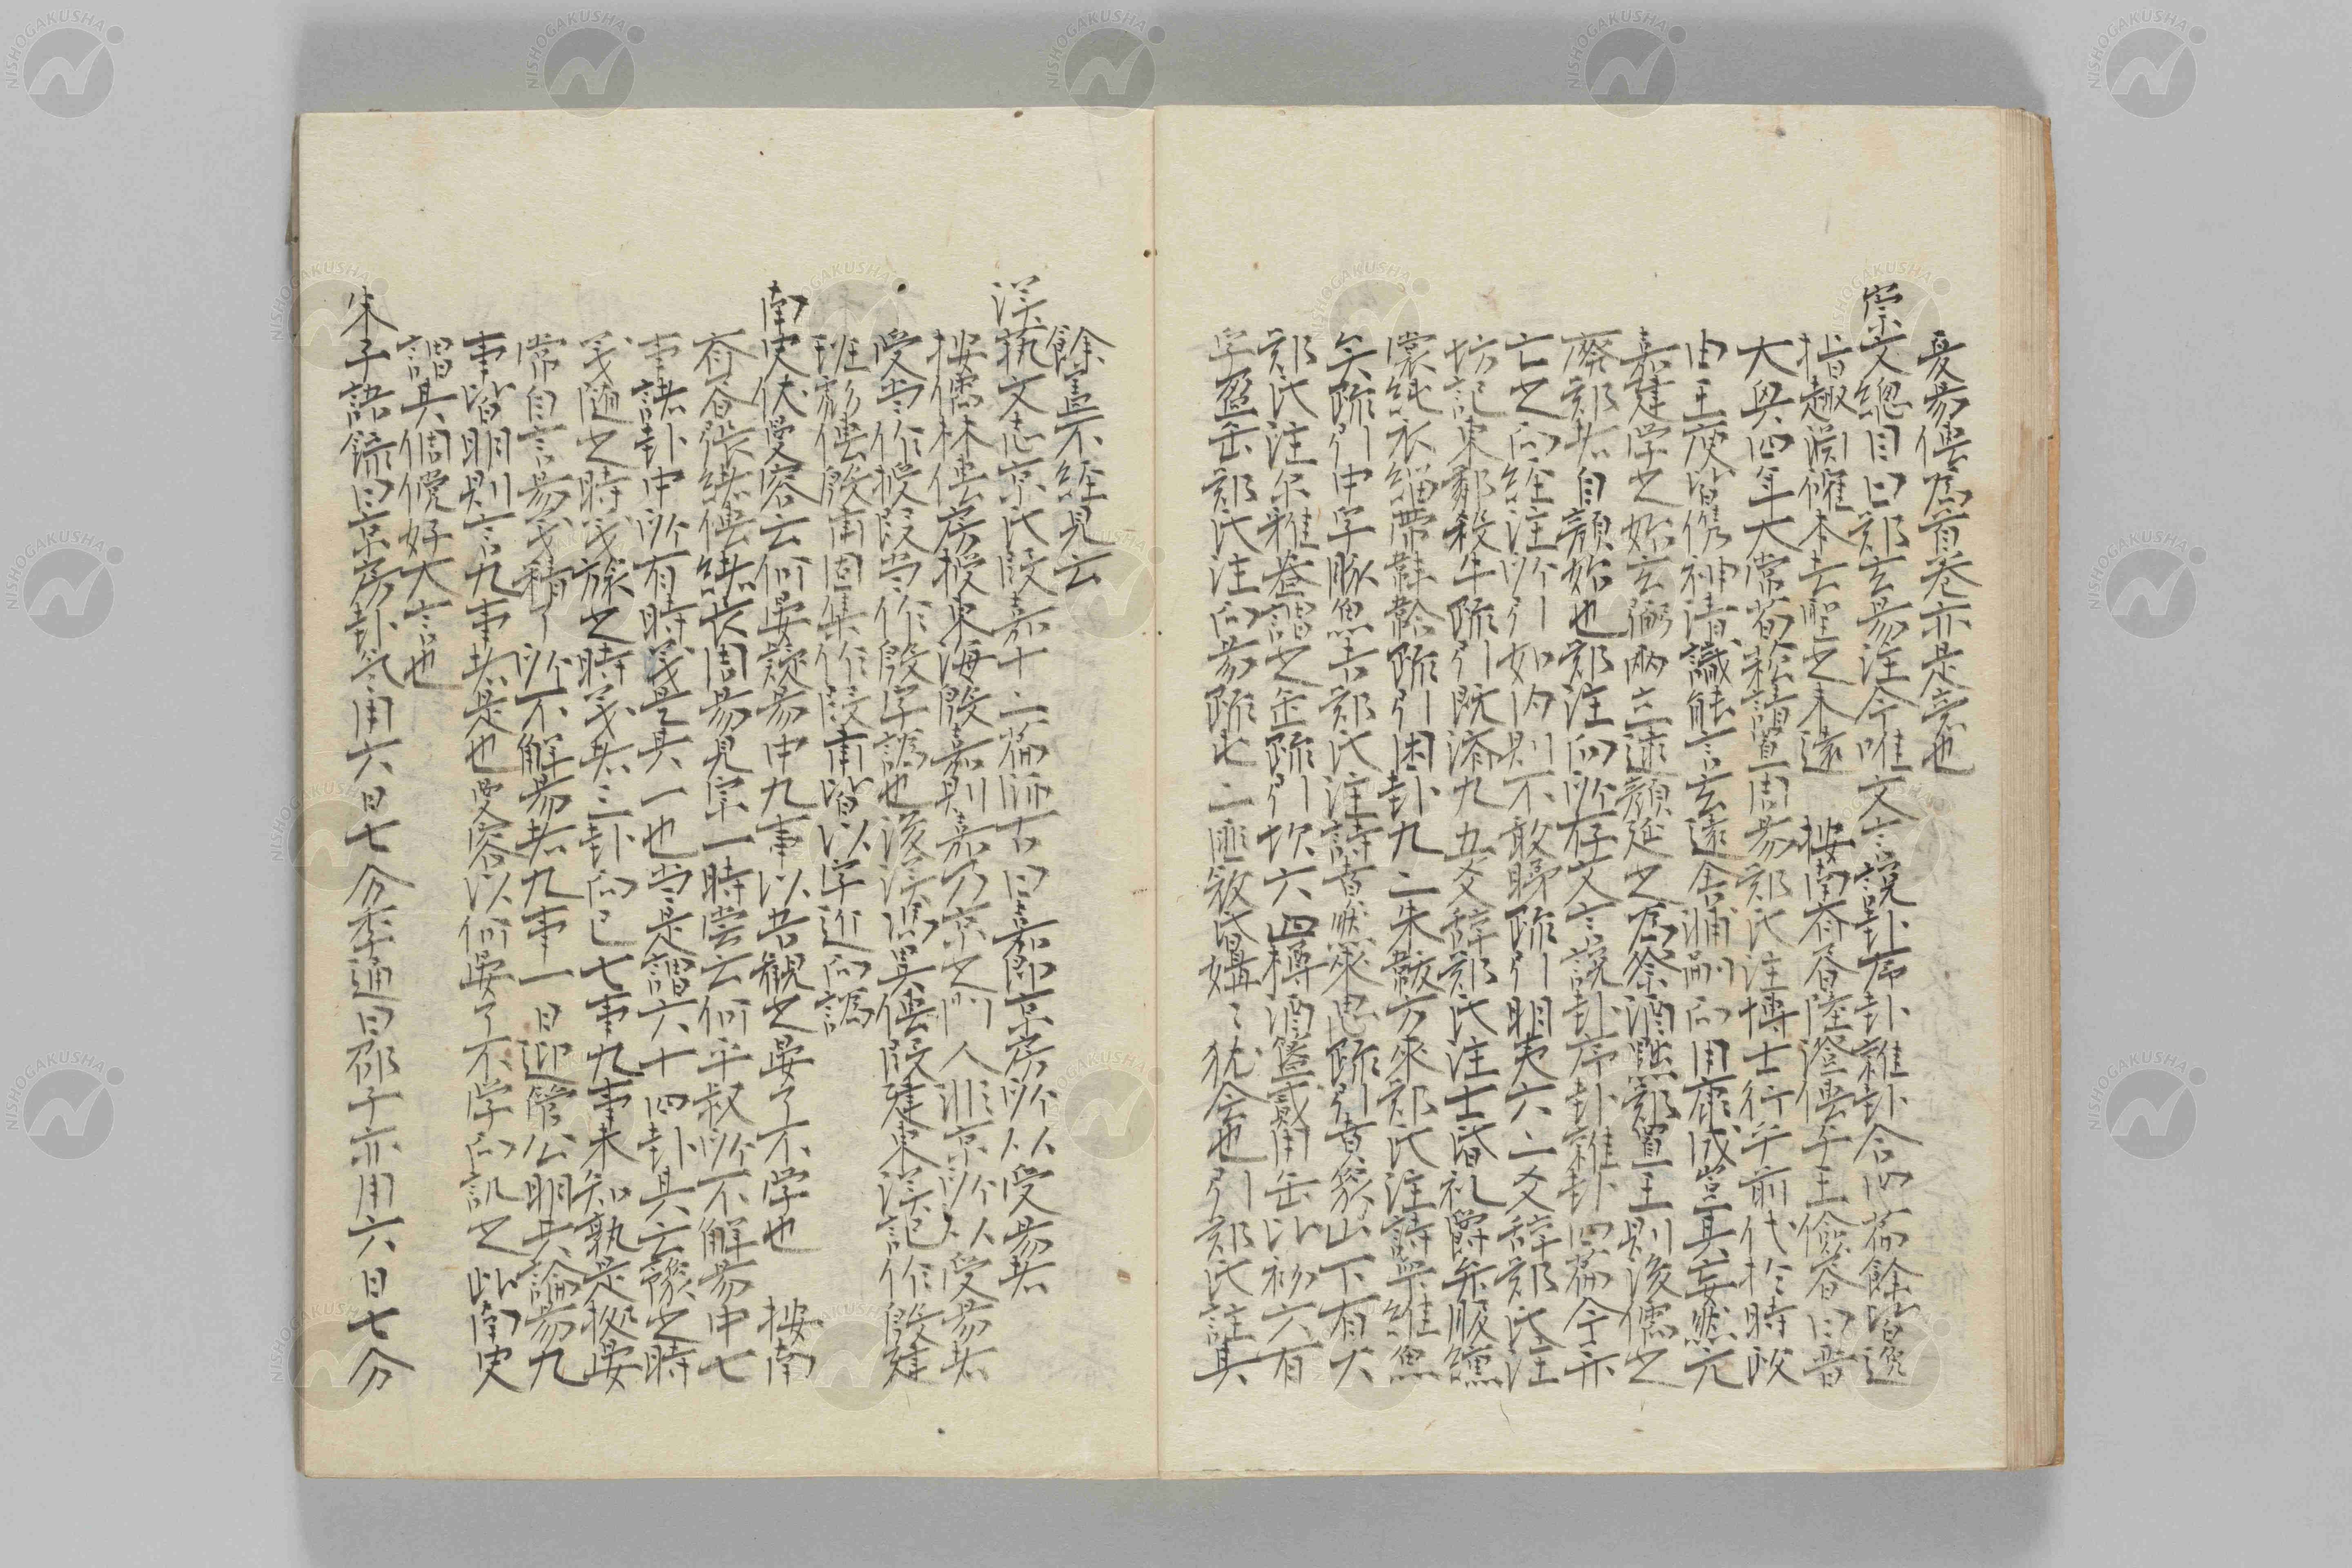 夏易傳為首卷亦是意也
崇文總目曰鄭玄易注今唯文言說卦序卦雜卦合四篇餘皆逸
指趣淵確本去聖之未遠　按南齊書陸澄傳与王儉書曰晋
大興四年大常荀崧請置周易鄭氏注博士行乎前代於時政
由王庾皆儁神清識能言玄遠舍輔嗣而用康成豈其妄然元
嘉建学之始玄弼兩立逮顏延之為祭酒黜鄭置王則後儒之
廃鄭者自顏始也鄭注而所存文言說卦序卦雜卦四篇今亦
亡之而経注所引如內則不敢睇疏引明夷六二爻辞鄭氏注
坊記東鄰殺牛疏引既濟九五爻辞鄭氏注士昏礼爵弁服纁
裳純衣緇帶韎韐疏引困卦九二朱韍方来鄭氏注詩衆維魚
矣疏引中孚豚魚吉鄭氏注詩莫然来思疏引賁彖山下有火
鄭氏注尔雅盎謂之缶疏引坎六四樽酒簋貳用缶比初六有
孚盈缶鄭氏注而易疏屯二匪寇昏媾〻犹会也引鄭氏註其
餘㮣不経見云
漢藝文志京氏段嘉十二篇師古曰嘉即京房所从受易者
按儒林傳房授東海殷嘉則嘉乃京之門人非京所从受易者
受当作授段当作殷字譌也後漢馮異傳段建東漢記作殷建
班彪傳殷甫固集作段甫皆以字近而譌
南史伏曼容云何晏疑易中九事以吾観之晏了不学也　按南
斉書張緒傳緒長周易見宗一時嘗云何平叔所不解易中七
事諸卦中所有時義是其一也当是謂六十四卦其云豫之時
義随之時義旅之時義者三卦而已七事九事未知孰是拠晏
常自言易義精了所不解易者九事一日迎管公明共論易九
事皆明則言九事者是也曼容以何晏了不学而訊之此南史
謂其倜儻好大言也
朱子語録曰京房卦気用六日七分季通曰邵子亦用六日七分